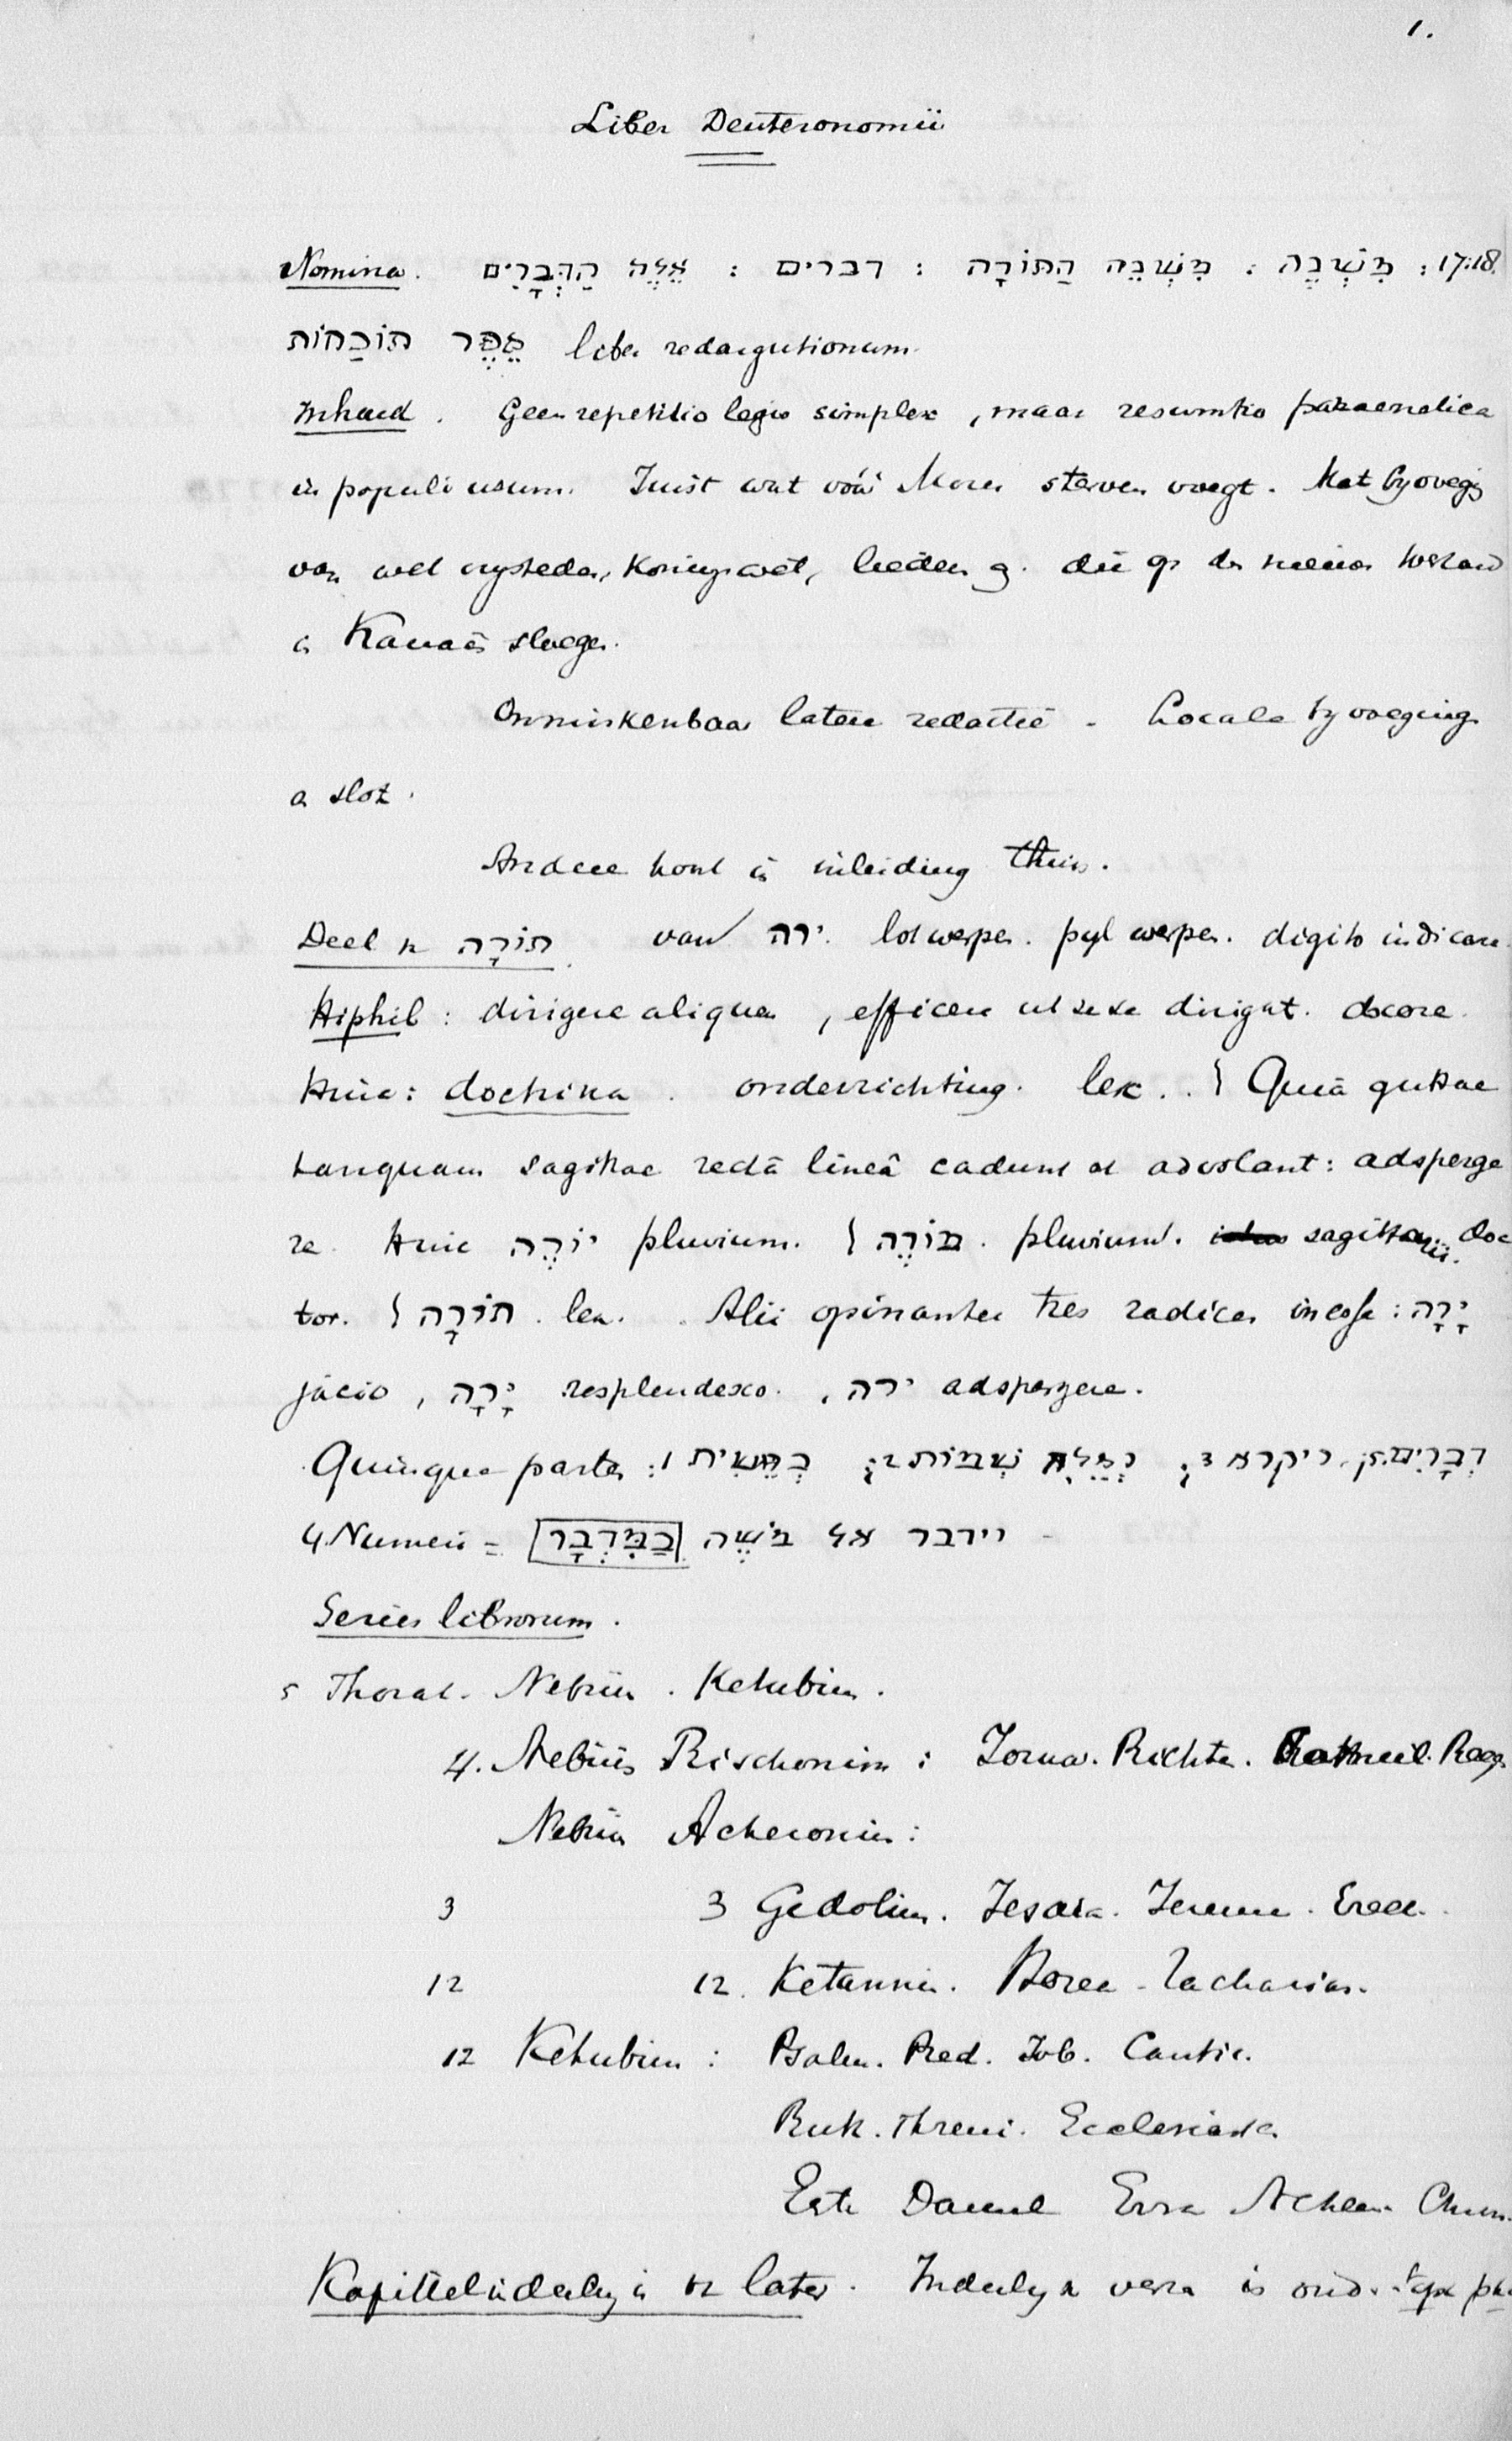 1.
Liber Deuteronomii
Nomina. אֵלֶּה הַדְּבָרִים : דברים : מִשְׁנֵה הַתּוֹרָה : מִשְׁנֶה : 17:18.
סֵפֶר תּוֹכָחוֹת liber redargutionum.
Inhoud. Geen repetitio legis simplex, maar resumtio paraenetica
in populi usum. Juist wat vóór Mozes sterven voegt. Met byvoeg̅g
van wet vrysteden, Koningswet, die op de nieuwe
in Kanaän sloegen.
Onmiskenbaar latere redactie. Locale byvoeging
a slot.
Andere komt in inleiding thuis.
Deel n תּוֹרָה van ירה. loswerpen. pyl werpen. digito indicare.
Hiphil: dirigere aliquem, efficere ut sese dirigat. docere.
Hinc: doctrina. onderrichting. lex. Quia guttae
tanquam sagittae rectâ lineâ cadunt et advolant: adsperge
re. Hinc יוֹרֶה pluvium. מוֹרֶה. pluvium. sagittarii. doc
tor. תּוֹרָה. lex. Alii opinantur tres radices inesse: יָרָה
jacio, יָרָה resplendesco, ירה adspergere.
Quinque partes: 1 בְּרֵאשִׁית 2 וְאֵלֶּה שְׁמוֹת 3 ויקרא 5 דְּבָרִים
4. Numeri = וידבר אל מֹשֶׁה בַּמִּדְבָּר
Series librorum.
5 Thorah. Nebiim. Ketubim.
4. Nebiim Rischonim: Jozua. Richte. Reg.
Nebiim Acheronim:
3 3 Gedolim. Jesaia. Jerem. Ezech.
12 12. Ketannim. Hozea - Zacharias.
12 Ketubim: Psalm. Pred. Job. Cantic.
Ruth. Threni. Ecclesiastes
Esth Daniel Ezra Nehem. Chron.
Kapittelindeeling is later. Indeeling n verzen is oud.